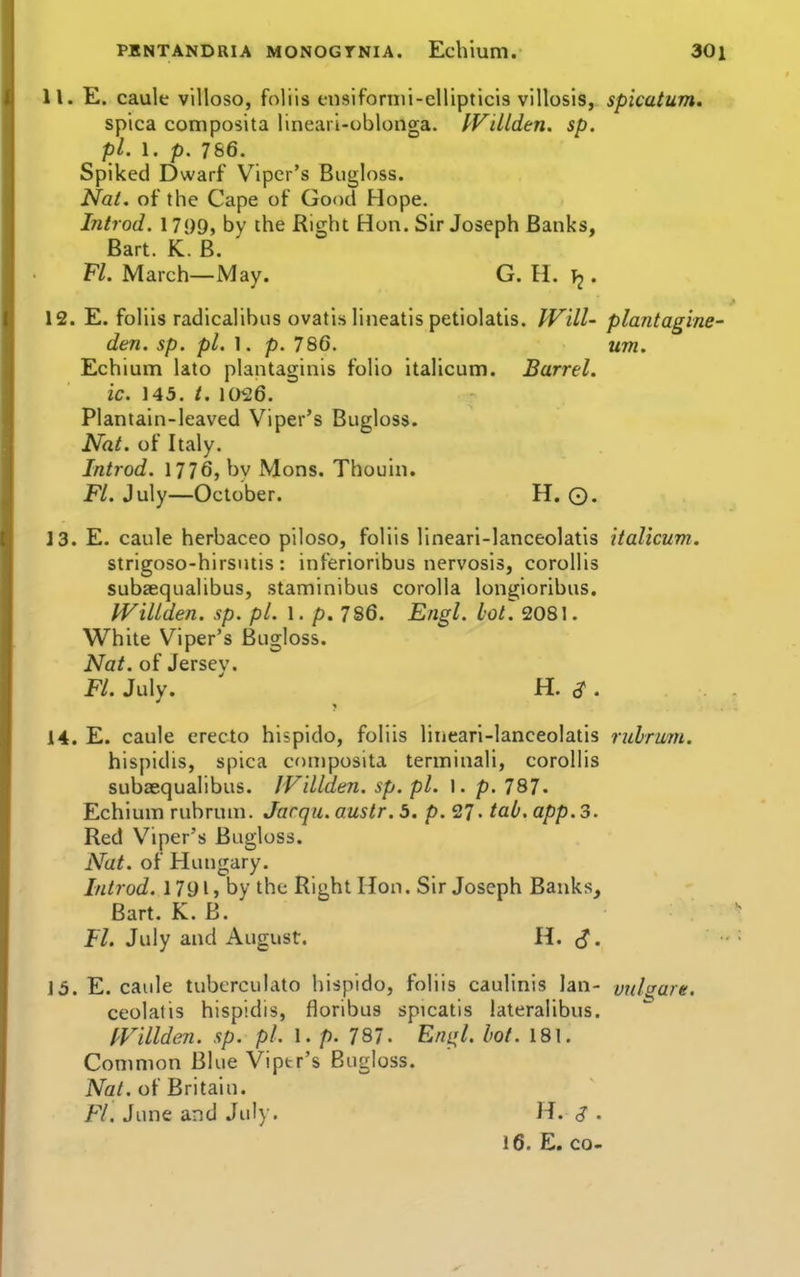 PENTANDRIA MONOGYNIA. Echium. 301
11. E. caule villoso, foliis ensiformi-ellipticis villosis, spicatum.
spica composita lineari-oblonga. Willden. sp.
pl. 1. p. 786.
Spiked Dwarf Viper's Bugloss.
Nat. of the Cape of Good Hope.
Introd. 1799, by the Right Hon. Sir Joseph Banks,
Bart. K. B.
Fl. March—May. G. H. ♄.
12. E. foliis radicalibus ovatis lineatis petiolatis. Will- plantagine-
den. sp. pl. 1. p. 786. um.
Echium lato plantaginis folio italicum. Barrel.
ic. 145. t. 1026.
Plantain-leaved Viper's Bugloss.
Nat. of Italy.
Introd. 1776, by Mons. Thouin.
Fl. July—October. H. ☉.
13. E. caule herbaceo piloso, foliis lineari-lanceolatis italicum.
strigoso-hirsutis: inferioribus nervosis, corollis
subæqualibus, staminibus corolla longioribus.
Willden. sp. pl. 1. p. 786. Engl. bot. 2081.
White Viper's Bugloss.
Nat. of Jersey.
Fl. July. H. ♂.
14. E. caule erecto hispido, foliis lineari-lanceolatis rubrum.
hispidis, spica composita terminali, corollis
subæqualibus. Willden. sp. pl. 1. p. 787.
Echium rubrum. Jacqu. austr. 5. p. 27. tab. app. 3.
Red Viper's Bugloss.
Nat. of Hungary.
Introd. 1791, by the Right Hon. Sir Joseph Banks,
Bart. K. B.
Fl. July and August. H. ♂.
15. E. caule tuberculato hispido, foliis caulinis lan- vulgare.
ceolatis hispidis, floribus spicatis lateralibus.
Willden. sp. pl. 1. p. 787. Engl. bot. 181.
Common Blue Viper's Bugloss.
Nat. of Britain.
Fl. June and July. H. ♂.
16. E. co-